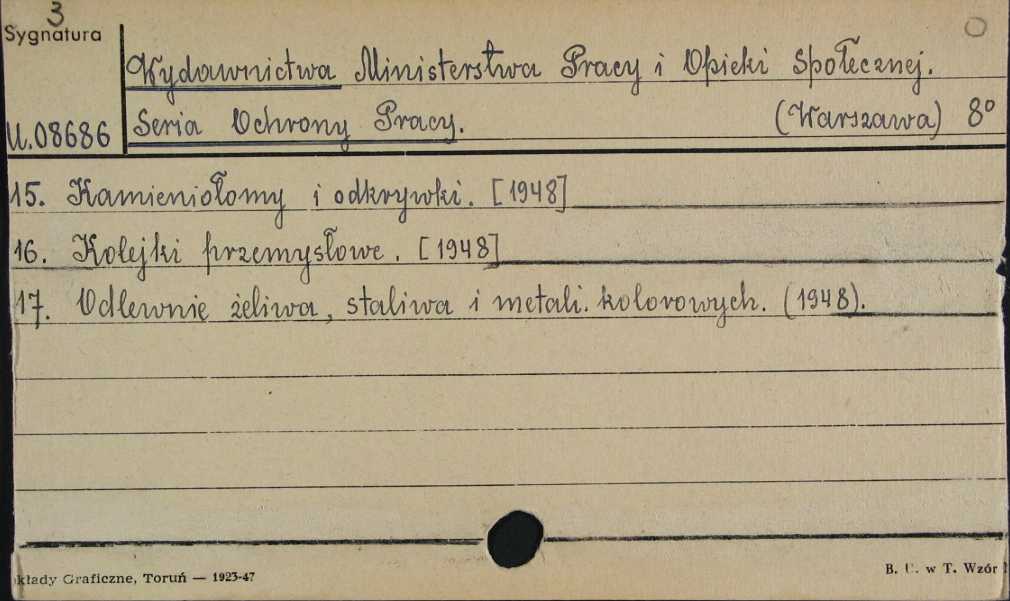 3
Sygnatura
Wydawnictwa Ministerstwa Pracy i Opieki Społecznej.
U.08686 Seria Ochrony Pracy. (Warszawa) 8°
15. Kamieniołomy i odkrywki. [1948]
16. Kolejki przemysłowe. [1948]
17. Odlewnie żeliwa, staliwa i metali. kolorowych. (1948).
kłady Graficzne, Toruń — 1923-47
B. U. w T. Wzór